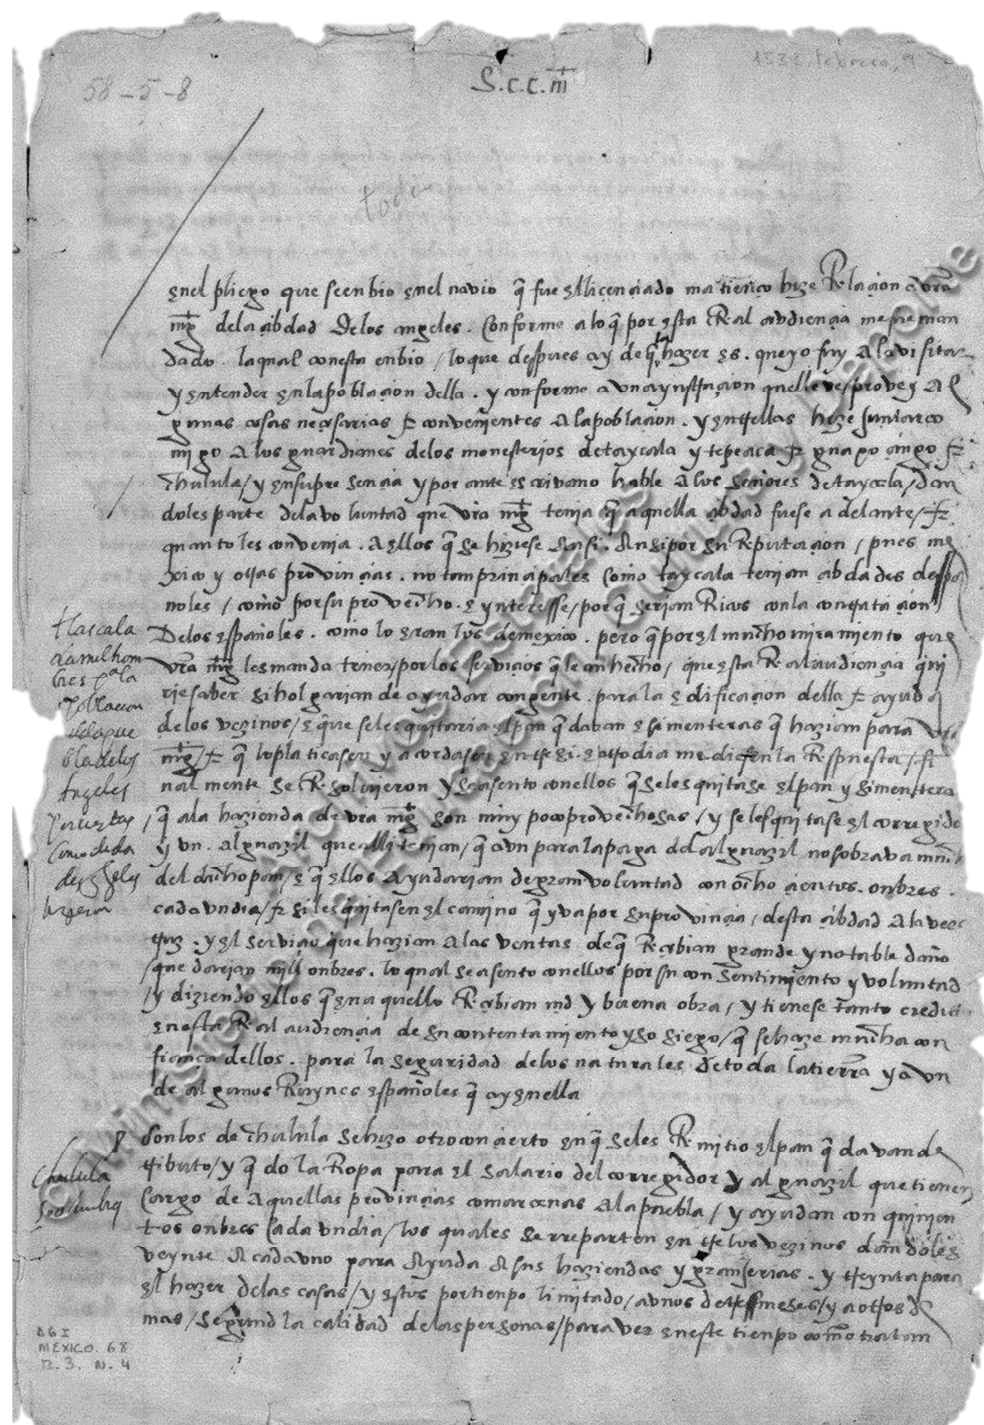 58-5-8
S.c.c.m
todo
enel pliego que se enbio enel navio q̃ fue el liçençiado matienço hize Relaçion a vr̃a
mg̃ dela çibdad delos angeles. conforme a lo q̃ por esta Real avdiençia me fue man
dado. la qual con esta enbio / lo que despues ay de q̃ hazer es. que yo fuy a la visitar
y entender en la poblaçion della. y conforme a vna ynstruçion que lleve / provey al
gunas cosas neçesarias & convenientes a la poblaçion. y entrellas hize juntar co
migo a los guardianes delos monesterios de taxcala y tepeaca & guaxoçingo &
chulula / y en su presençia y por ante escrivano hable a los señores de taxcala / dan
doles parte dela voluntad que vr̃a mg̃ tenia q̃ aquella çibdad fuese adelante / &
quanto les convenia. a ellos q̃ se hiziese ansi. ansi por su Reputaçion / pues me
xico y otras provinçias. no tan prinçipales como taxcala tenian çibdades despa
ñoles / como por su provecho. e ynteresse / por q̃ serian Ricos con la contrataçion
delos españoles. como lo eran los de mexico. pero q̃ por el mucho miramiento que
vr̃a mg̃ les manda tener / por los serviçios q̃ le an hecho / que esta Real avdiençia qui
rie saber si holgarian de ayudar con gente. para la edificaçion della & ayuda
delos vezinos / e que se les quitaria el pan q̃ davan e simenteras q̃ hazian para vr̃a
mg̃ / & q̃ lo platicasen y acordasen entre si. e otro dia me diesen la Respuesta / & fi
nalmente se Resolvieron y se asento con ellos q̃ se les quitase el pan y simentera
q̃ a la hazienda de vr̃a mg̃ son muy poco provechosas / y se les quitase el corregidor
y vn. alguazil que alli tenian / q̃ avn para la paga del alguazil no sobrava mucho
del dicho pan / e q̃ ellos ayudarian de gran voluntad con ochoçientos. onbres.
cada vn dia / & si les quitasen el camino q̃ yva por su provinçia / desta çibdad a la vera
cruz. y el serviçio que hazian a las ventas. de q̃ Resçibian grande y notable daño
/ que darian mill onbres. lo qual se asento con ellos por su consentimiento y voluntad
/ y diziendo ellos q̃ en aquello Resçibian md̃ y buena obra / y tienese tanto credito
en esta Real avdiençia de su contentamiento y sosiego / q̃ se haze mucha con
fiança dellos. para la seguridad delos naturales de toda la tierra y avn
de algunos Ruynes españoles q̃ ay en ella
Con los de chulula se hizo otro conçierto en q̃ se les Remitio el pan q̃ davan de
tributo / y q̃ do la Ropa para el salario del corregidor y alguazil que tienen
cargo de aquellas provinçias comarcanas a la puebla / y ayudan con quinien
tos onbres cada vn dia / los quales se rreparten entre los vezinos dandoles
veynte a cada vno para ayuda a sus haziendas y granjerias. y treynta para
el hazer delas casas / y estos por tienpo limitado / a vnos de tres meses / y a otros de
mas / segund la calidad delas personas / para ver en este tienpo como tratan
tlascala
da mill hom
bres pa la
poblacion
dela pue
bla delos
Angeles
por ciertas
cosas de
que se les
Chulula
500 hombres
AGI
MEXICO. 68
R. 3. N. 4